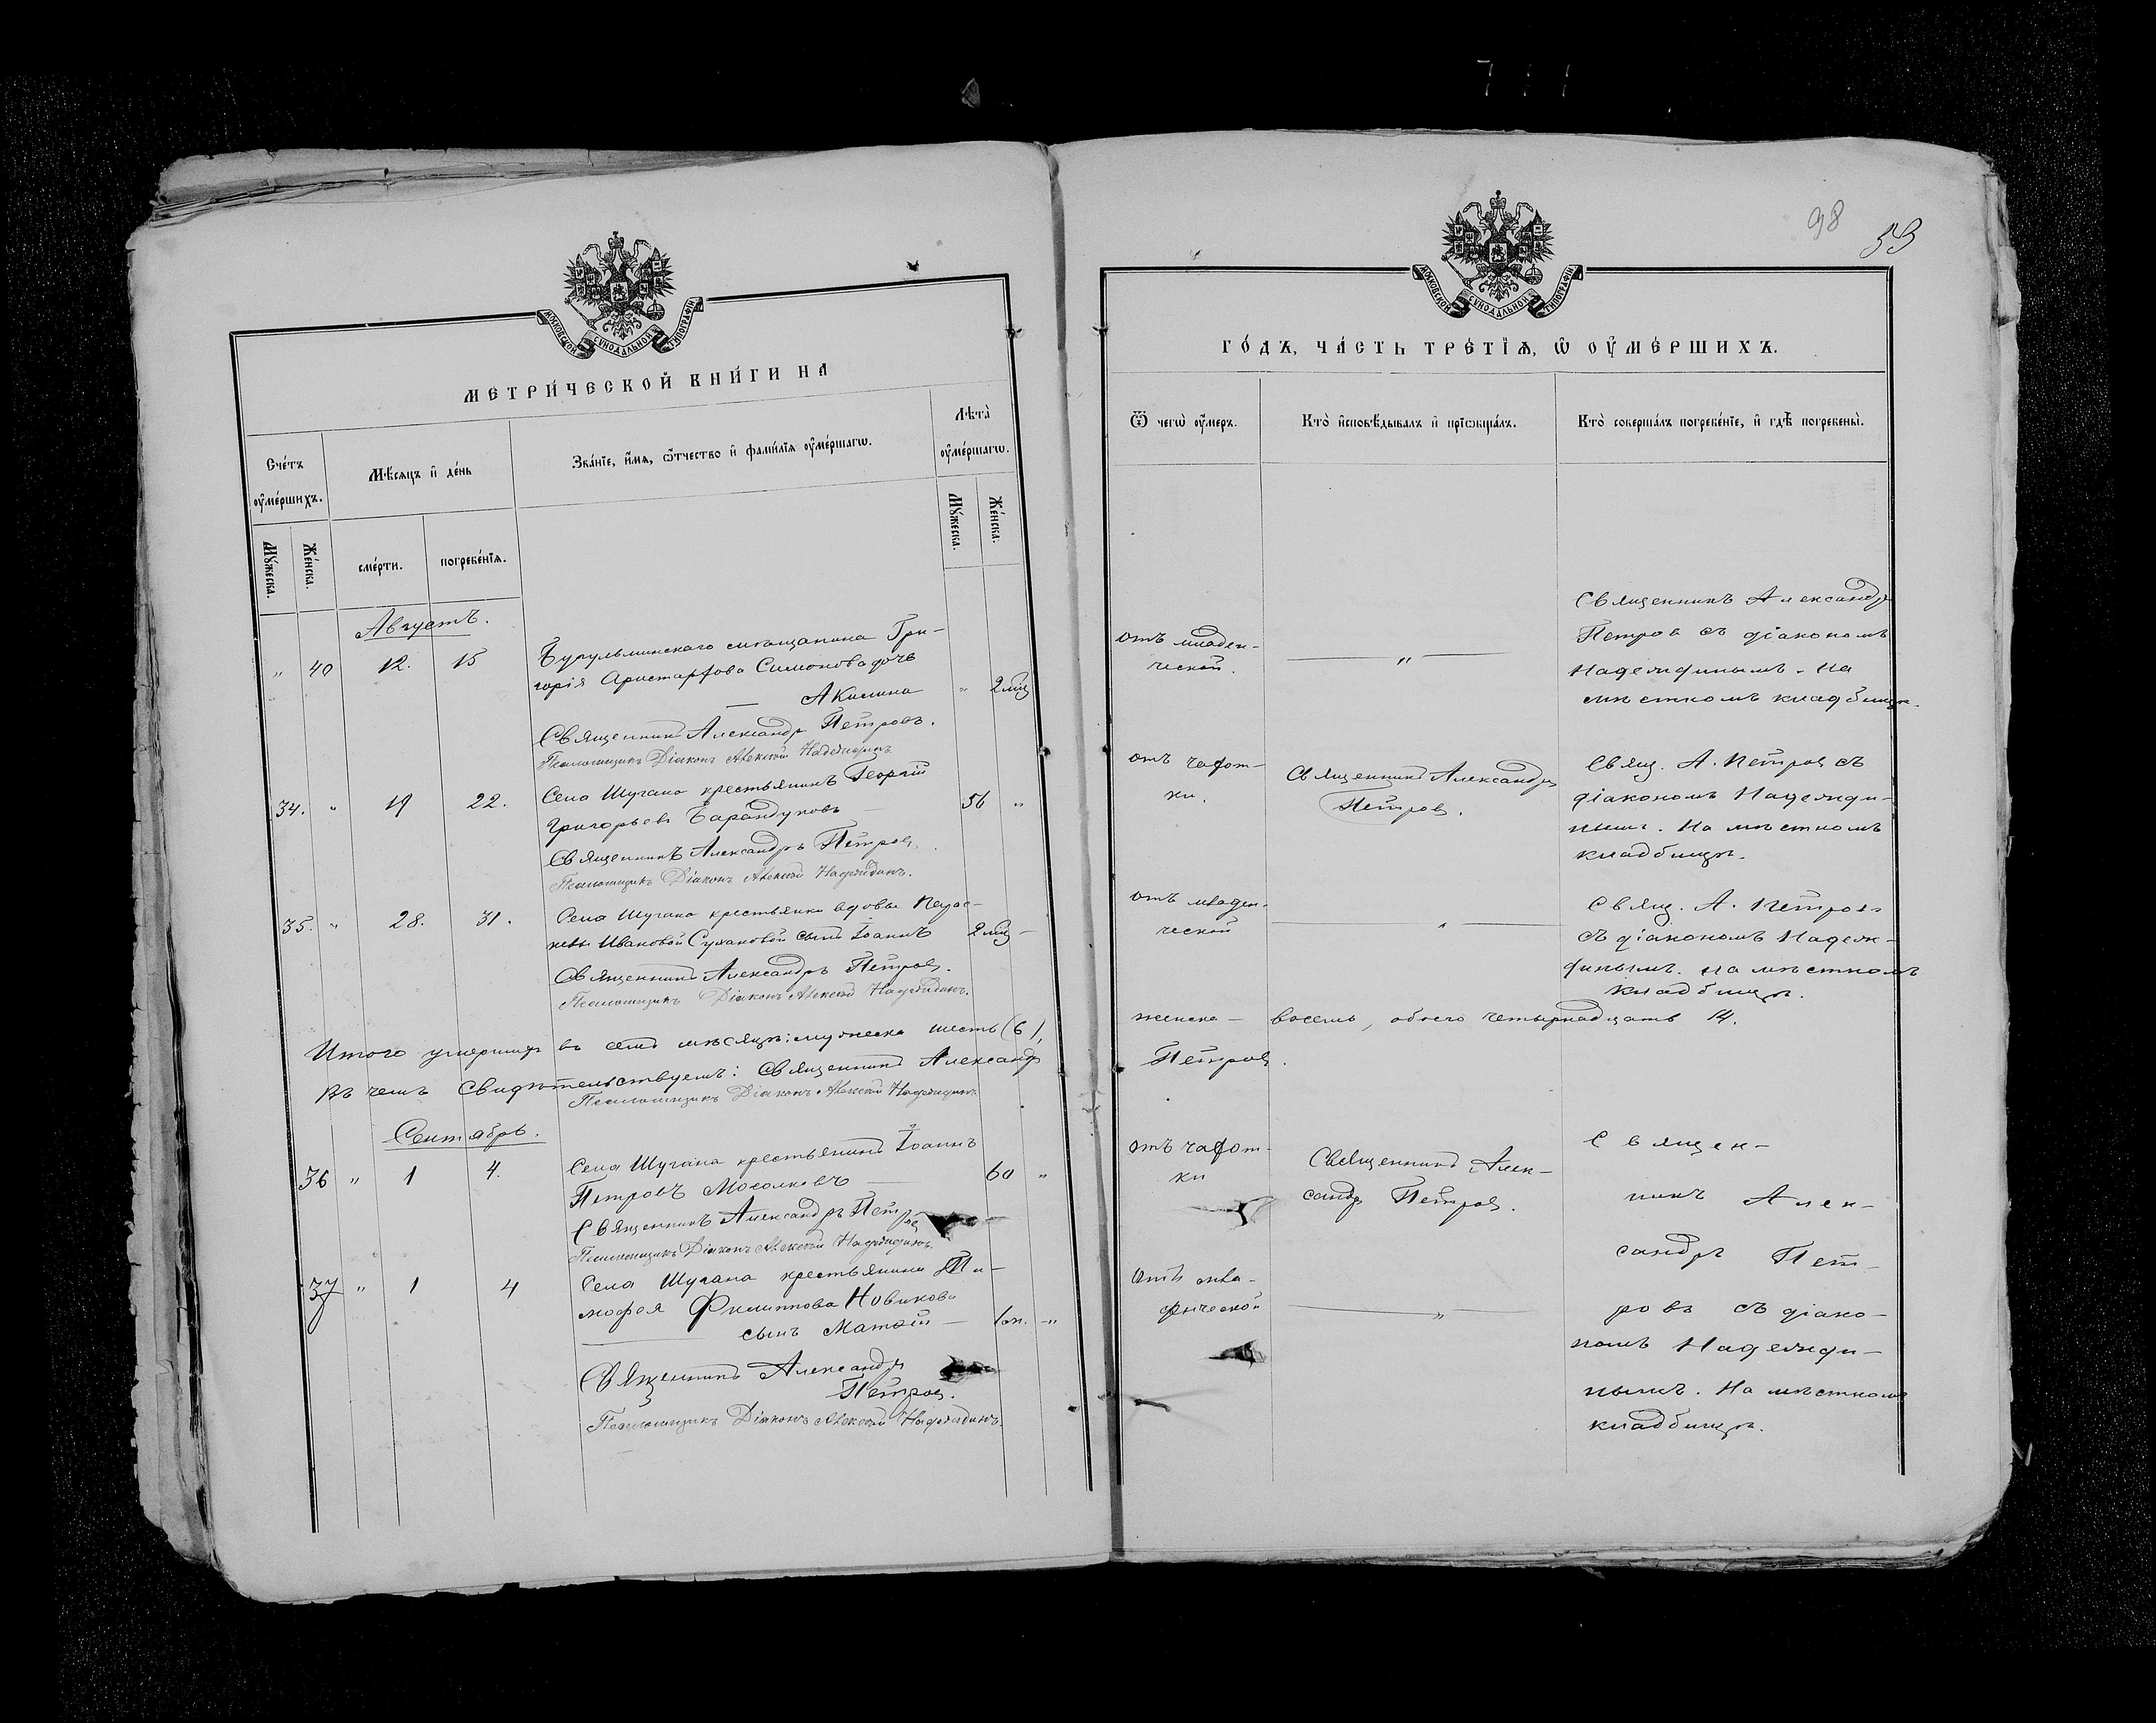 711
98
59
МОСКОВСКОЙ СѴНОДАЛЬНОЙ ТИПОГРАФІИ
МЕТРИ́ЧЕСКОЙ КНИ́ГИ НА
Сче́тъ оу҆ме́ршихъ.
Мѣ́сяцъ и҆ де́нь
Зва́ніе, и҆́мѧ, ѻ҆́тчество и҆ фами́лїѧ оу҆ме́ршагѡ.
Лѣта̀ оу҆ме́ршагѡ.
Мꙋ́жеска.
Же́нска.
сме́рти.
погребе́нїѧ.
Мꙋ́жеска.
Же́нска.
Августъ.
" 40 12. 15
Бугульминскаго мѣщанина Гри-
горія Аристархова Симонова дочь
Акилина " 2 мѣц
Священникъ Александръ Петровъ.
Псаломщикъ Діаконъ Алексѣй Надеждинъ
34. " 19 22.
Села Шугана крестьянинъ Георгій
Григорьевъ Барандуковъ — 56 "
Священникъ Александръ Петровъ.
Псаломщикъ Діаконъ Алексѣй Надеждинъ.
35. " 28. 31.
Села Шугана крестьянки вдовы Парас-
кевы Ивановой Сухановой сынъ Іоаннъ 2 мѣц —
Священникъ Александръ Петровъ.
Псаломщикъ Діаконъ Алексѣй Надеждинъ.
Итого умершихъ въ семъ мѣсяцѣ: мужеска шесть (6),
Въ чемъ свидѣтельствуемъ: Священникъ Александръ
Псаломщикъ Діаконъ Алексѣй Надеждинъ
Сентябрь.
36 " 1 4.
Села Шугана крестьянинъ Іоаннъ
Петровъ Мосолковъ — 60 "
Священникъ Александръ Петровъ
Псаломщикъ Діаконъ Алексѣй Надеждинъ.
37 " 1 4
Села Шугана крестьянина Ти-
мофея Филиппова Новикова
сынъ Матѳій —
Священникъ Александръ
Петровъ.
Псаломщикъ Діаконъ Алексѣй Надеждинъ.
МОСКОВСКОЙ СѴНОДАЛЬНОЙ ТИПОГРАФІИ
ГО́ДЪ, ЧА́СТЬ ТРЕ́ТЇѦ, Ѡ҆ ОУ҆МЕ́РШИХЪ.
Ѿ чегѡ̀ оу҆́меръ.
Кто̀ и҆сповѣ́дывалъ и҆ прїѡбща́лъ.
Кто̀ соверша́лъ погребе́нїе, и҆ гдѣ̀ погребены̀.
отъ младен-
ческой.
"
Священникъ Александръ
Петровъ съ діакономъ
Надеждинымъ. На
мѣстномъ кладбищѣ.
отъ чахот-
ки.
Священникъ Александръ
Петровъ.
Свящ. А. Петровъ съ
діакономъ Надежди-
нымъ. На мѣстномъ
кладбищѣ.
отъ младен-
ческой
"
Свящ. А. Петровъ
съ діакономъ Надеж-
динымъ. На мѣстномъ
кладбищѣ.
женска — восемь, обоего четырнадцать 14.
Петровъ.
отъ чахот-
ки
Священникъ Алек-
сандръ Петровъ.
Священ-
никъ Алек-
сандръ Пет-
ровъ съ діако-
номъ Надежди-
нымъ. На мѣстномъ
кладбищѣ.
отъ мла-
денческой
"